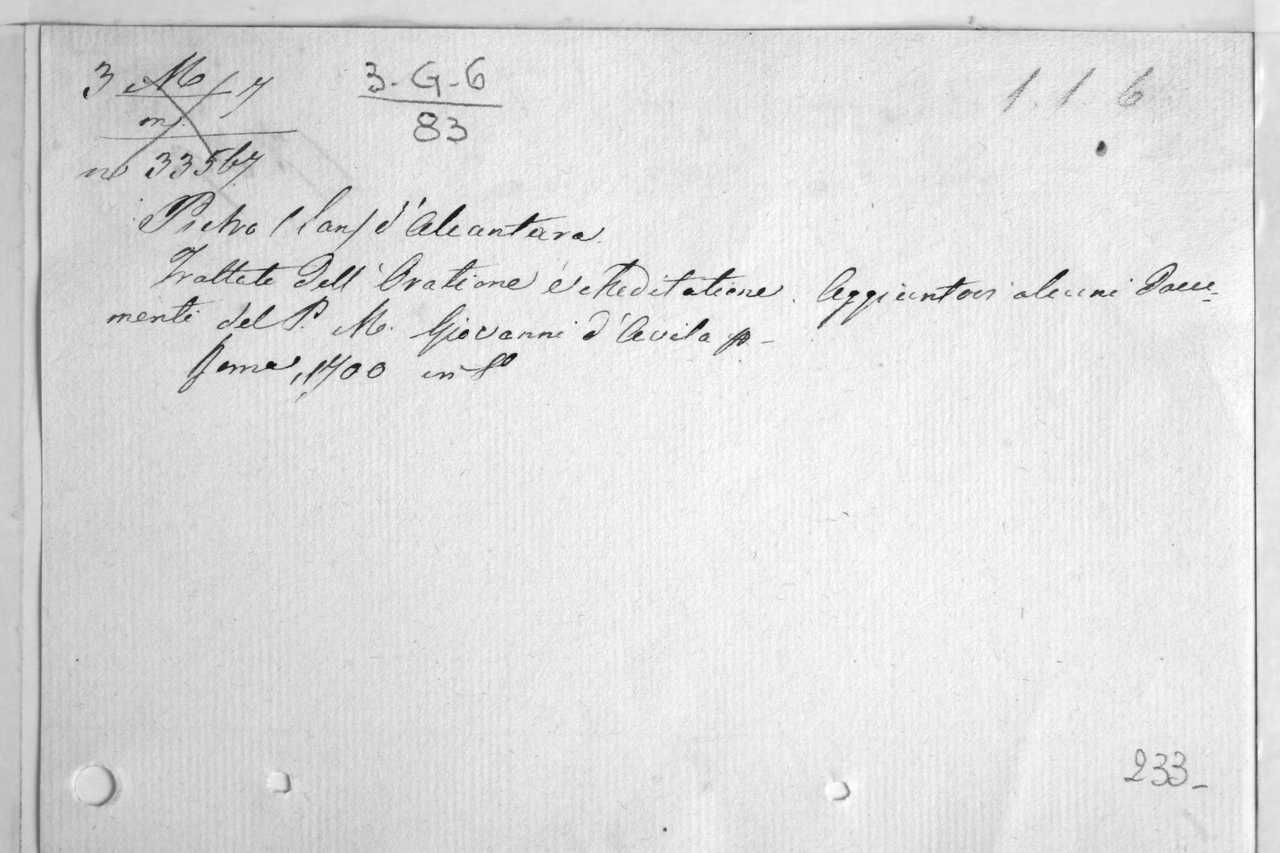 3 M / 7
3-G-6
83
1. 1. 6
nº 33567
Pietro (San) d'Alcantara.
Trattato dell'Oratione e Meditatione. Aggiuntovi alcuni docu=
menti del P. M. Giovanni d'Avila
Roma, 1700 in 8º
233-